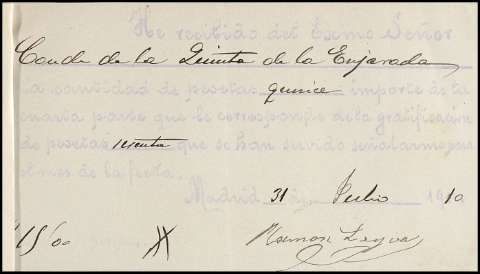 He recibido del Excmo Señor
Conde de la Quinta de la Enjarada
la cantidad de pesetas quince importe de la
cuarta parte que le corresponde de la gratificación
de pesetas sesenta que se han servido señalarme por
el mes de la fecha.
Madrid 31 Julio 1910
15'00 Ramon Leyva